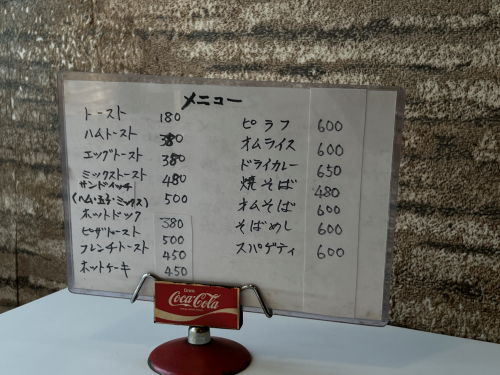 メニュー
トースト 180
ハムトースト 380
エッグトースト 380
ミックストースト 480
サンドイッチ
(ハム・玉子・ミックス) 500
ホットドック 380
ピザトースト 500
フレンチトースト 450
ホットケーキ 450
ピラフ 600
オムライス 600
ドライカレー 650
焼そば 480
オムそば 600
そばめし 600
スパゲティ 600
Drink
Coca-Cola